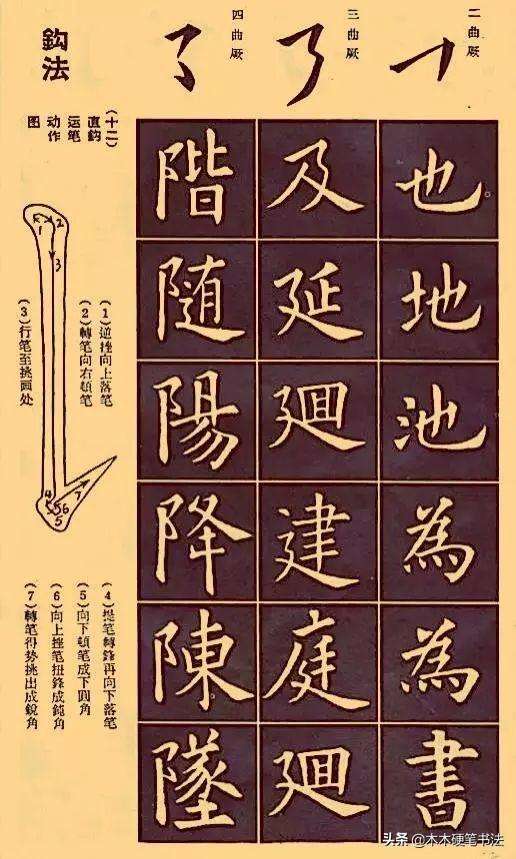 二曲厥
也
地
池
為
為
書
三曲厥
及
延
廻
建
庭
廻
四曲厥
階
随
陽
降
陳
墜
鈎法
(十二)
直鈎
运笔
动作
图
1
2
3
4
5
6
7
(1)逆挫向上落笔
(2)轉笔向右頓笔
(3)行笔至挑画处
(4)提笔轉鋒再向下落笔
(5)向下頓笔成下圓角
(6)向上挫笔扭鋒成鈍角
(7)轉笔得势挑出成銳角
头条 @木木硬笔书法